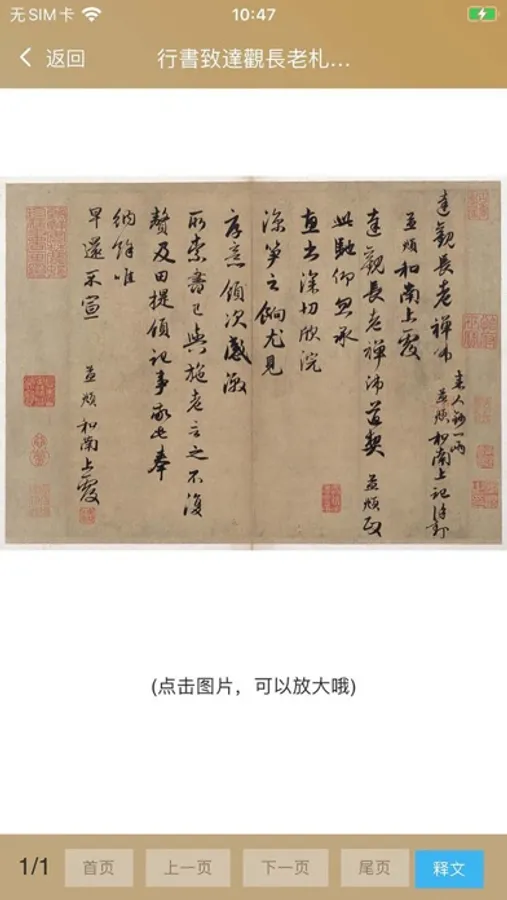 无SIM卡
10:47
返回
行書致達觀長老札...
達觀長老禪師
來人鈔一兩
孟頫和南上記謹封
孟頫和南上覆
達觀長老禪師道契 孟頫頓
此馳仰忽承
惠書深切欣浣
涼笋之餉尤見
厚意領次感激
所索書已與施老言之不復
贅及田提領記事敬此奉
納餘唯
早還不宣
孟頫和南上覆
(点击图片，可以放大哦)
1/1
首页
上一页
下一页
尾页
释文